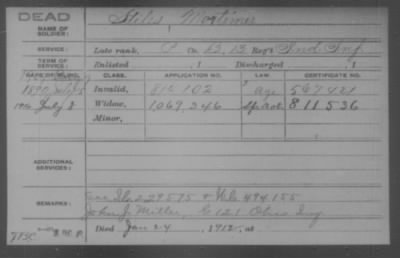 DEAD
NAME OF SOLDIER: Stiles, Mortimer
SERVICE: Late rank, P Co. 13 Reg't Ind Inf
TERM OF SERVICE: Enlisted , 1 Discharged , 1
DATE OF FILING. CLASS. APPLICATION NO. LAW. CERTIFICATE NO.
1890 Invalid, 816 102 567 421
July 8 Widow, 1,069,246 811536
Minor,
ADDITIONAL SERVICES:
229575 & 494155
REMARKS: John J. Miller, 121 Inf
Died Jan 24, 1912, at